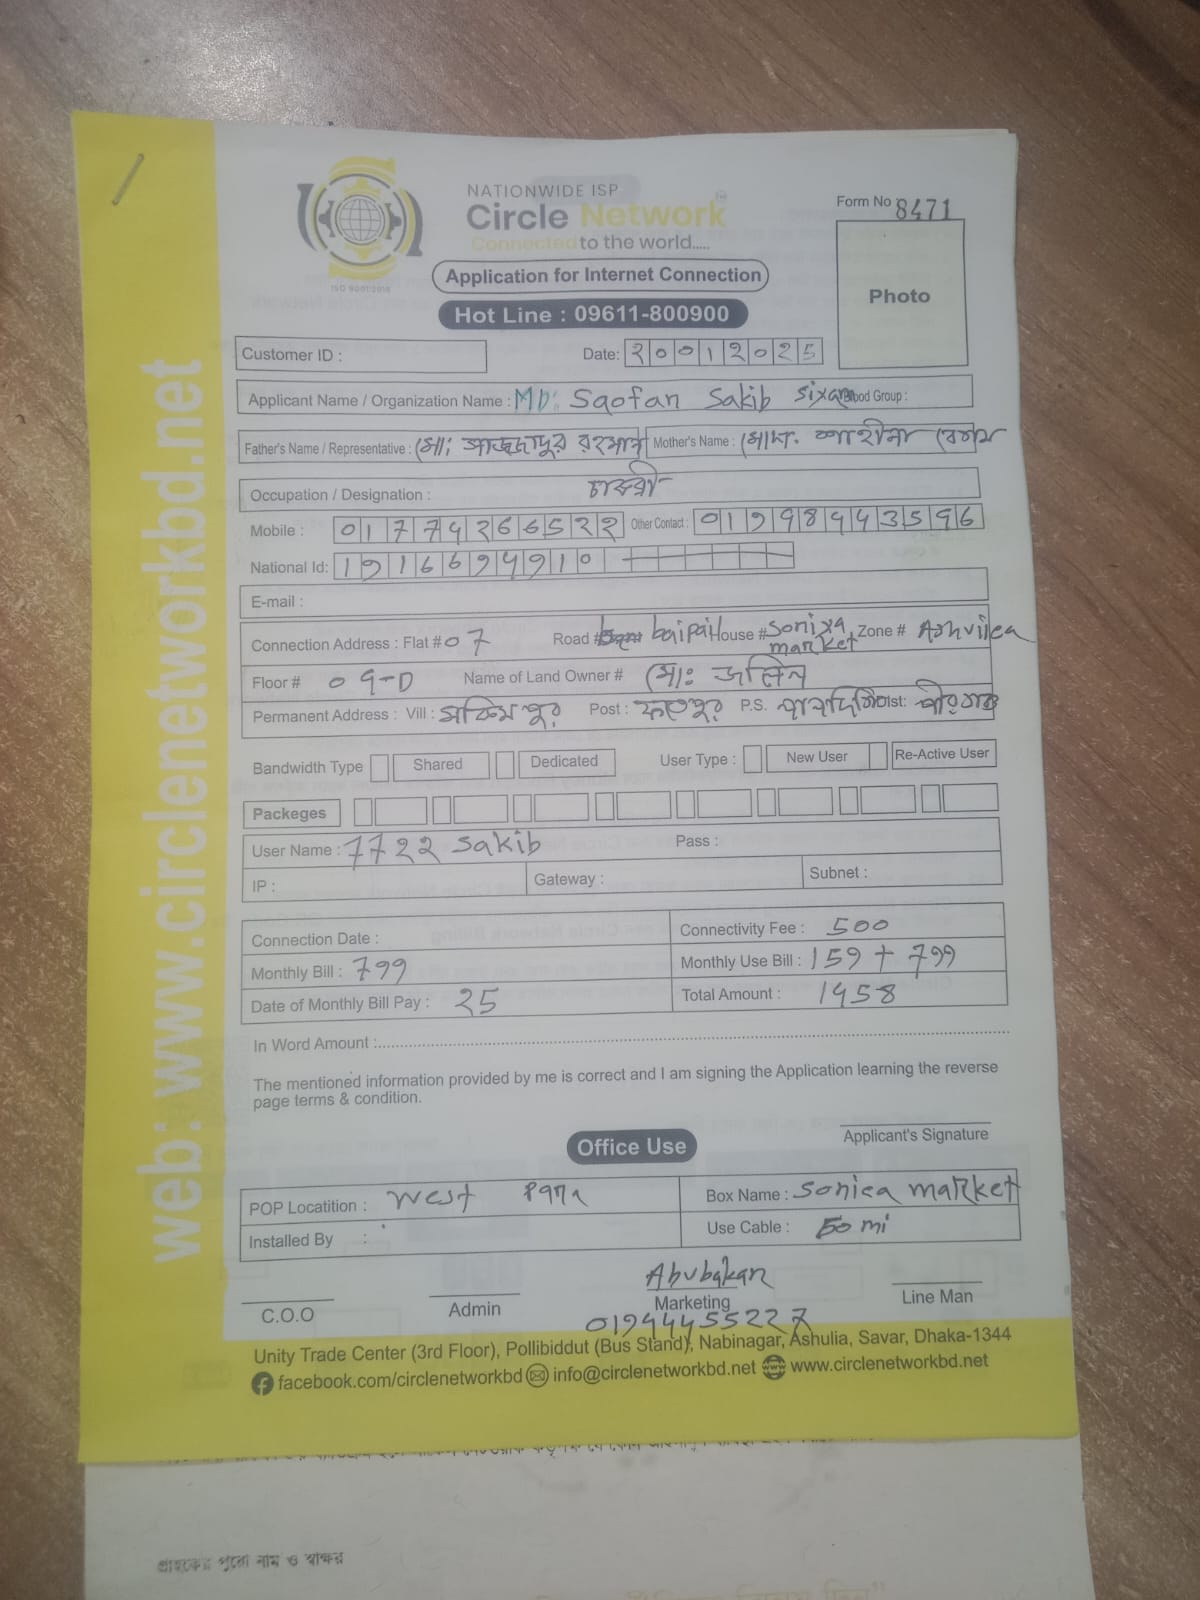 NATIONWIDE ISP
Circle Network
Connected to the world.....
ISO 9001:2015
Form No 8471
Photo
Application for Internet Connection
Hot Line : 09611-800900
Customer ID :
Date: 20012025
Applicant Name / Organization Name : MD: Saofan Sakib Blood Group :
Father's Name / Representative : মো: রহমান Mother's Name : মোছা. শাহীনা বেগম
Occupation / Designation : চাকরী
Mobile : Other Contact :
National Id:
E-mail :
Connection Address : Flat # 07 Road # baipail House # Sonixa market Zone #
Floor # Name of Land Owner # মো: জলিল
Permanent Address : Vill : Post : ফতেপুর P.S. Dist:
Bandwidth Type Shared Dedicated User Type : New User Re-Active User
Packeges
User Name : 7722 Sakib Pass :
IP : Gateway : Subnet :
Connection Date : Connectivity Fee : 500
Monthly Bill : 799 Monthly Use Bill : 159 + 799
Date of Monthly Bill Pay : 25 Total Amount : 1458
In Word Amount :
The mentioned information provided by me is correct and I am signing the Application learning the reverse
page terms & condition.
Applicant's Signature
Office Use
POP Locatition : West Box Name : Sonica market
Installed By : Use Cable : 50 mi
Abubakar
C.O.O Admin Marketing Line Man
01944455227
Unity Trade Center (3rd Floor), Pollibiddut (Bus Stand), Nabinagar, Ashulia, Savar, Dhaka-1344
facebook.com/circlenetworkbd info@circlenetworkbd.net www.circlenetworkbd.net
web: www.circlenetworkbd.net
গ্রাহকের পুরো নাম ও স্বাক্ষর